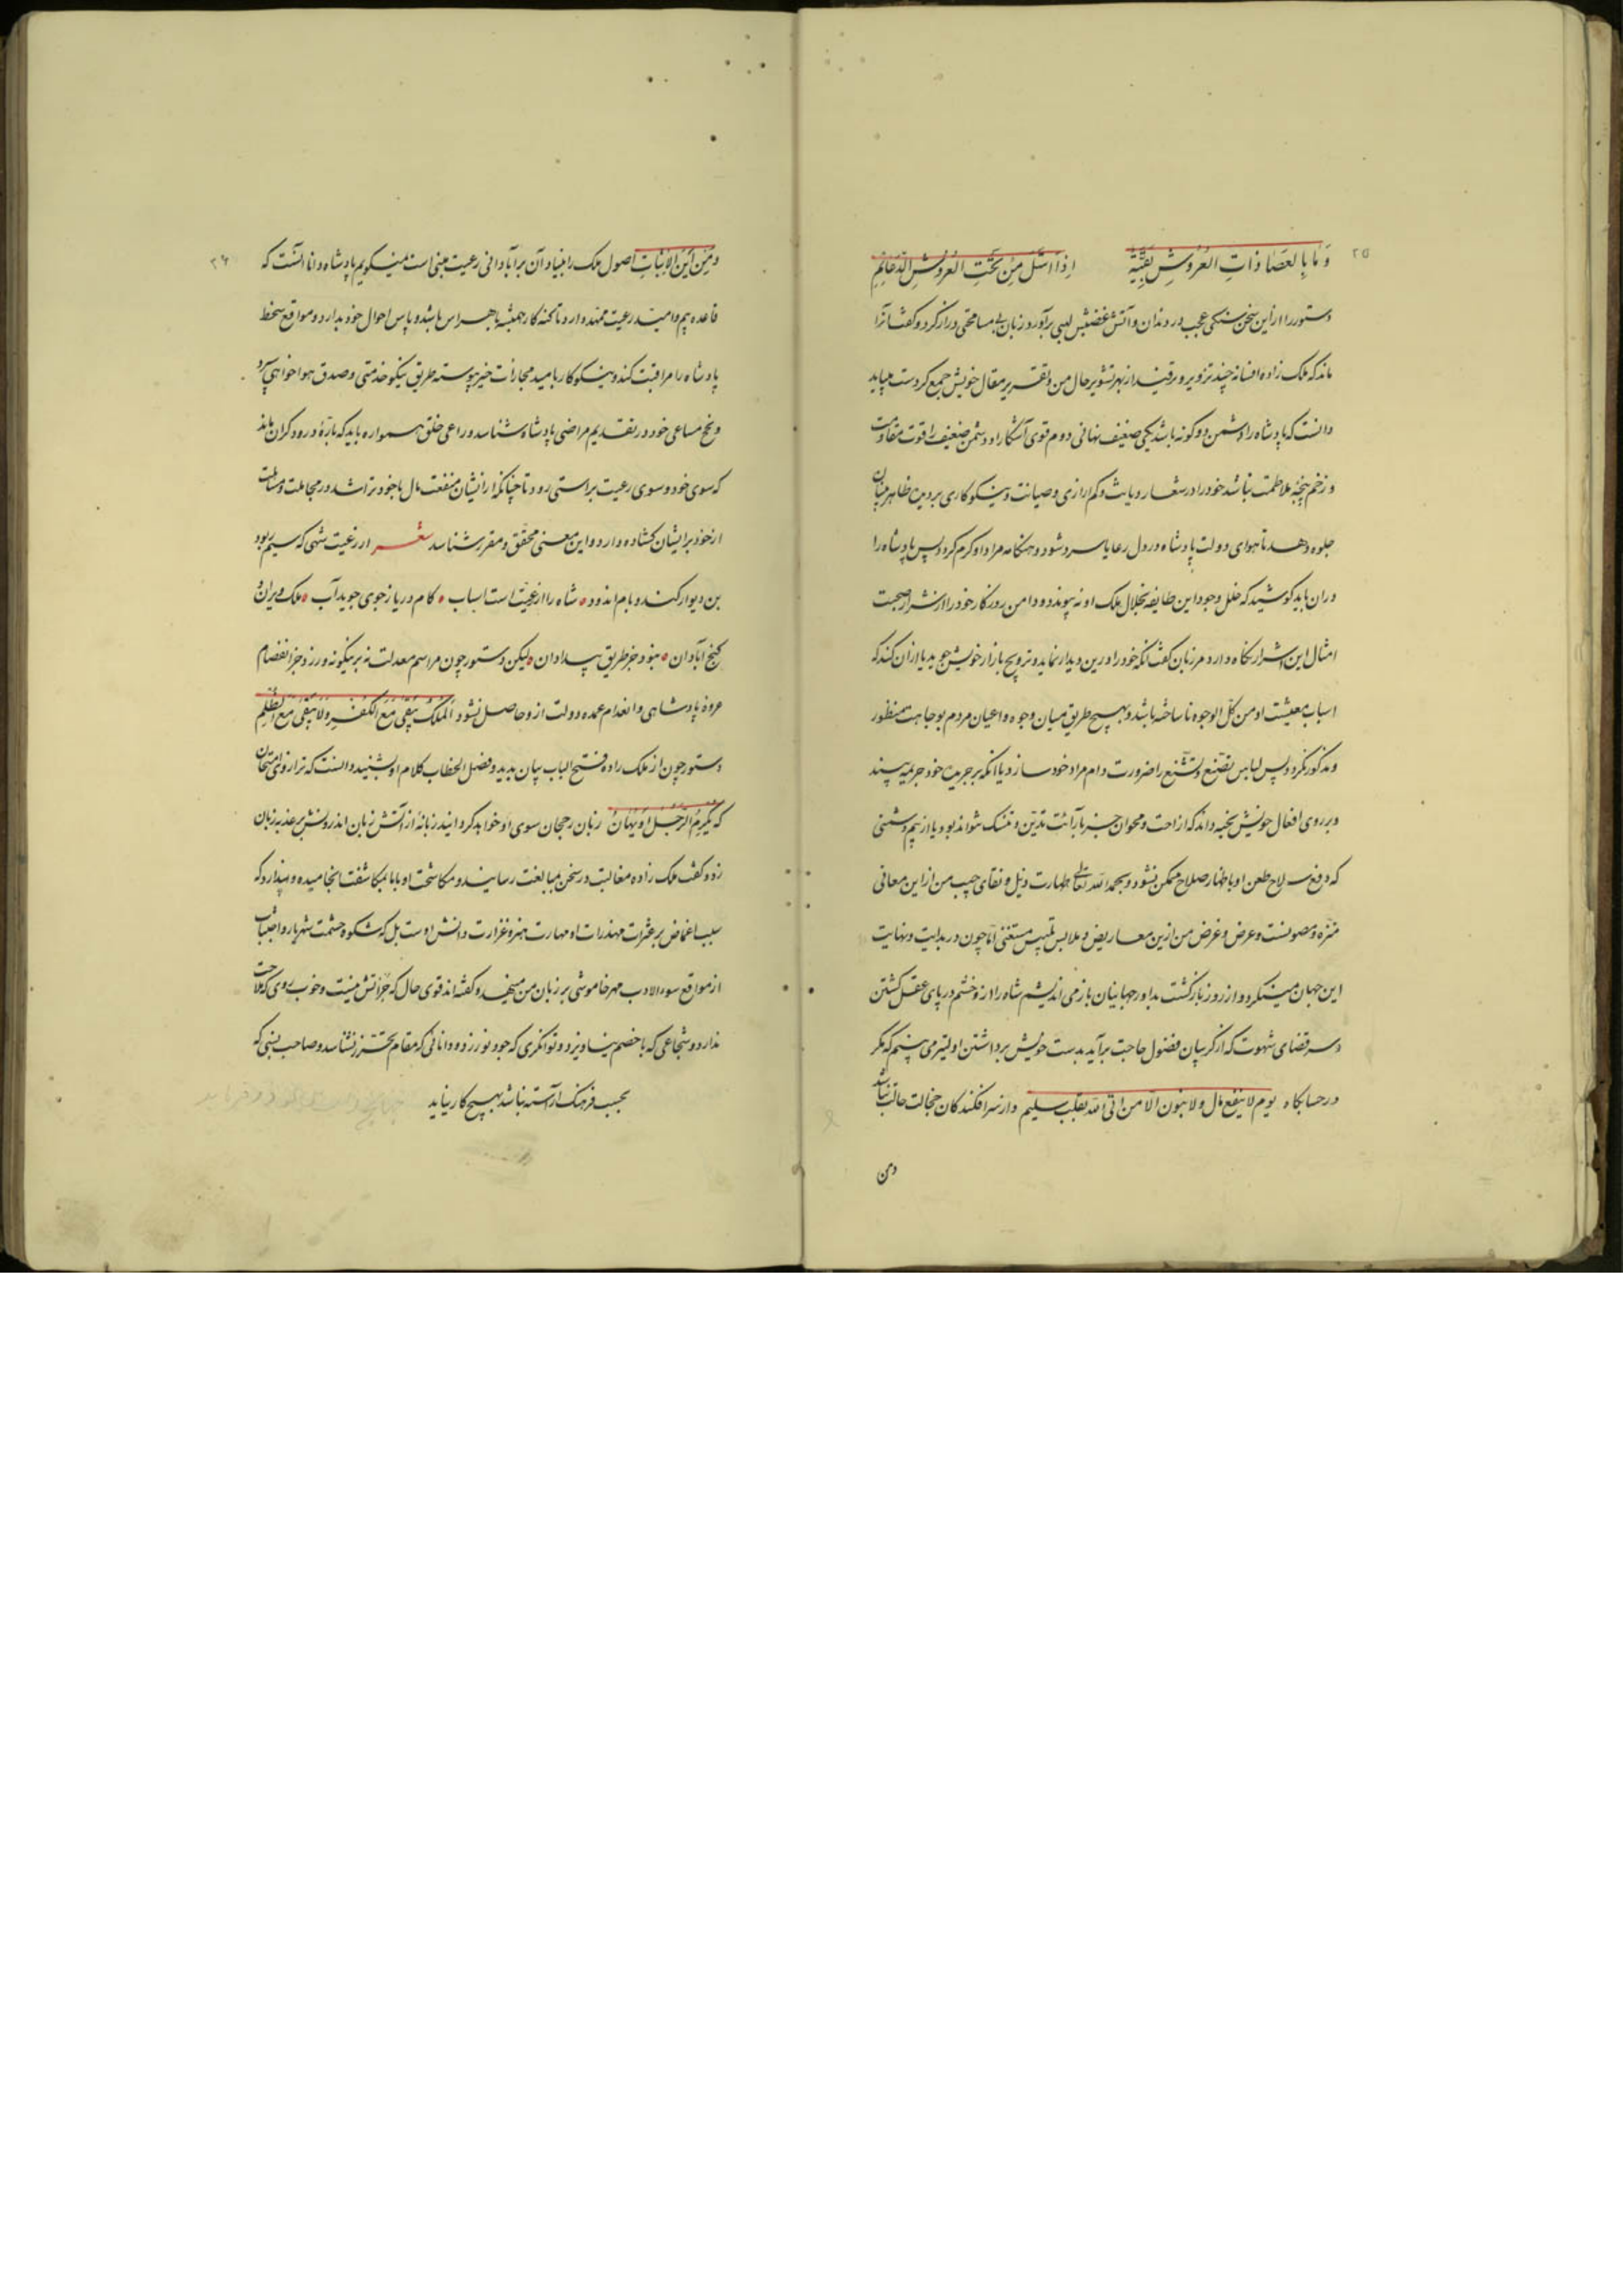 ۲۵
وَ مَا بِالعَصَا ذاتِ العُرُوشِ بَقِیَّةٌ اِذا اسْتَلَّ مِنْ تَحْتِ العُرُوشِ الدَّعائِمِ
دستور را از این سخن سنگی عجب در دندان و آتش غضبش لهبی برآورد زبان بی مسامحتی دراز کرد و گفت انرا
ماند که ملک زاده افسانه چند تزویر و برقند از بهر تشویر حال من و تقریر مقال خویش جمع کردست میباید
دانست که پادشاه را دشمن دو گونه باشد یکی ضعیف نهانی دوم قوی آشکارا و دشمن ضعیف را قوت مقاومت
و زخم پنجهٔ ملاطمت نباشد خود را در شعار دیانت و کم آزاری و صیانت و نیکوکاری بر دیدهٔ ظاهربینان
جلوه دهد تا هوای دولت پادشاه در دل رعایا سرد شود و هنگامه مراد او گرم گردد پس پادشاه را
دران باید کوشید که خلل وجود این طایفه بخلال ملک او نه پیوندد و دامن روزگار خود را از شر صحبت
امثال این اشرار نگاه دارد مرزبان گفت آنکه خود را درین دیدار نماید و ترویج بازار خویش جوید یا ازان کند که
اسباب معیشت او من کلّ الوجوه ناساخته باشد و بهیچ طریق میان وجوه و اعیان مردم بوجاهت منظور
و مذکور نگردد پس لباس تصنّع و تشنّع را ضرورت دام مراد خود سازد یا آنکه بر جریدهٔ خود جریمه بیند
و بر روی افعال خویش خجبه داند که از احت و محو آن جز بآرائت تدیّن و تنسک نتواند بود یا از بیم دشمنی
که دفع سلاح طعن او باظهار صلاح ممکن نشود و بحمد الله تعالی طهارت ذیل و نقای جیب من از این معانی
منزه و مصونست و عرض و غرض من ازین معاریض و ملابس تلبیس مستغنی امّا چون در بدایت و نهایت
این جهان مینگرد و از روز بازگشت بداور جهانیان باز می اندیشم شاه را آز و خشم در پای عقل کشتن
و سر قضای شهوت که از گریبان فضول حاجت برآید بدست خویش برداشتن اولیتر می بینم که مگر
در حسابگاه یوم لا ینفع مال و لا بنون الّا من اتی الله بقلب سلیم و از سرافکندگان خجالت حالت نباشد
و من
۲۶
و مِن اَیْنَ الاِثبات اصول ملک را بنیاد آن بر آبادانی رعیت مبنی است نیکو گویم پادشاه دانا آنست که
قاعده بیم و امید رعیت ممهد دارد تا گنه کار همیشه با هراس باشد و پاس احوال خود بدارد و مواقع سخط
پادشاه را مراقبت کند و نیکوکار بامید مجازات خیر پیوسته طریق نیکو خدمتی و صدق هواخواهی سپرد
و نجح مساعی خود در تقدیم مراضی پادشاه شناسد و راعی خلق همواره باید که تازهٔ درودگران ماند
که سوی خود و سوی رعیت براستی رود تا چنانکه از ایشان منفعت مال با خود تراشد در مجاملت و مسائلت
از خود بر ایشان گشاده دارد و این معنی محقق و مقرر شناسد شعـــر از رعیت شهی که سیم ربود
بن دیوار کند و بام اندود ٥ شاه را از رعیت است اسباب ٥ کام دریا ز جوی جوید آب ٥ ملک ویران
گنج آبادان ٥ نبود جز طریق بیدادان ٥ لیکن دستور چون مراسم معدلت نه بر نیگونه ورزد جز انفصام
عروهٔ پادشاهی و انعدام عمده دولت ازو حاصل نشود اَلمُلْکُ یَبْقَی مَعَ الکُفْرِ وَلَا یَبْقَی مَعَ الظُّلمِ
دستور چون از ملک زاده فتح الباب بیان بدید و فصل الخطاب کلام او بشنید دانست که ترازوی امتحان
که یُکْرَمُ الرَّجُلُ اَوْ یُهَانُ زبان رجحان سوی او خواهد گردانید زبانهٔ از آتش زبان اندرونش بر عذبه زبان
زد و گفت ملک زاده مغالبت در سخن بمبالغت رسانید و مکاشحت او با ما بمکاشفت انجامیده و پندارد که
سبب اغماض بر عثرات و هذرات او مهارت هنر و غزارت دانش اوست بل که شکوه حشمت شهریار و اجتناب
از مواقع سوء الادب مهر خاموشی بر زبان من مینهد و گفته اند قوی حال که جزأتش نیست و خوب روی که ملاحت
ندارد و شجاعی که با خصم نیاویزد و توانگری که جود نورزد و دانائی که مقام تحرّز نشناسد و صاحب نسبی که
بحسب فرهنگ آراسته نباشد بهیچ کار نیاید